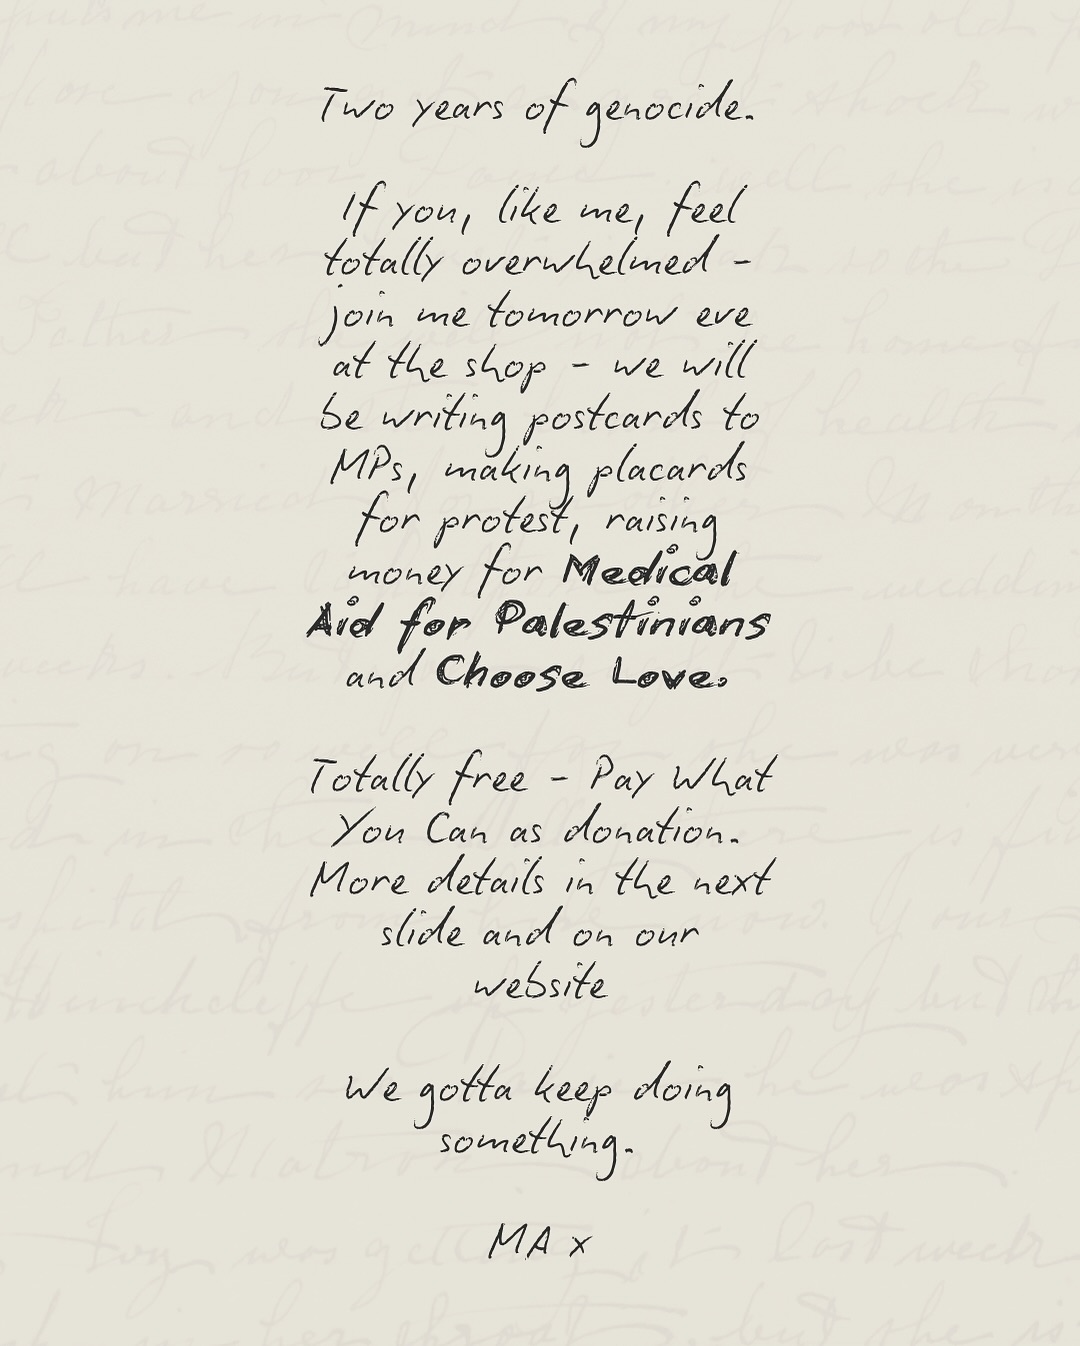 Two years of genocide.
If you, like me, feel
totally overwhelmed -
join me tomorrow eve
at the shop - we will
be writing postcards to
MPs, making placards
for protest, raising
money for Medical
Aid for Palestinians
and Choose Love.
Totally free - Pay What
You Can as donation.
More details in the next
slide and on our
website
We gotta keep doing
something.
MA x